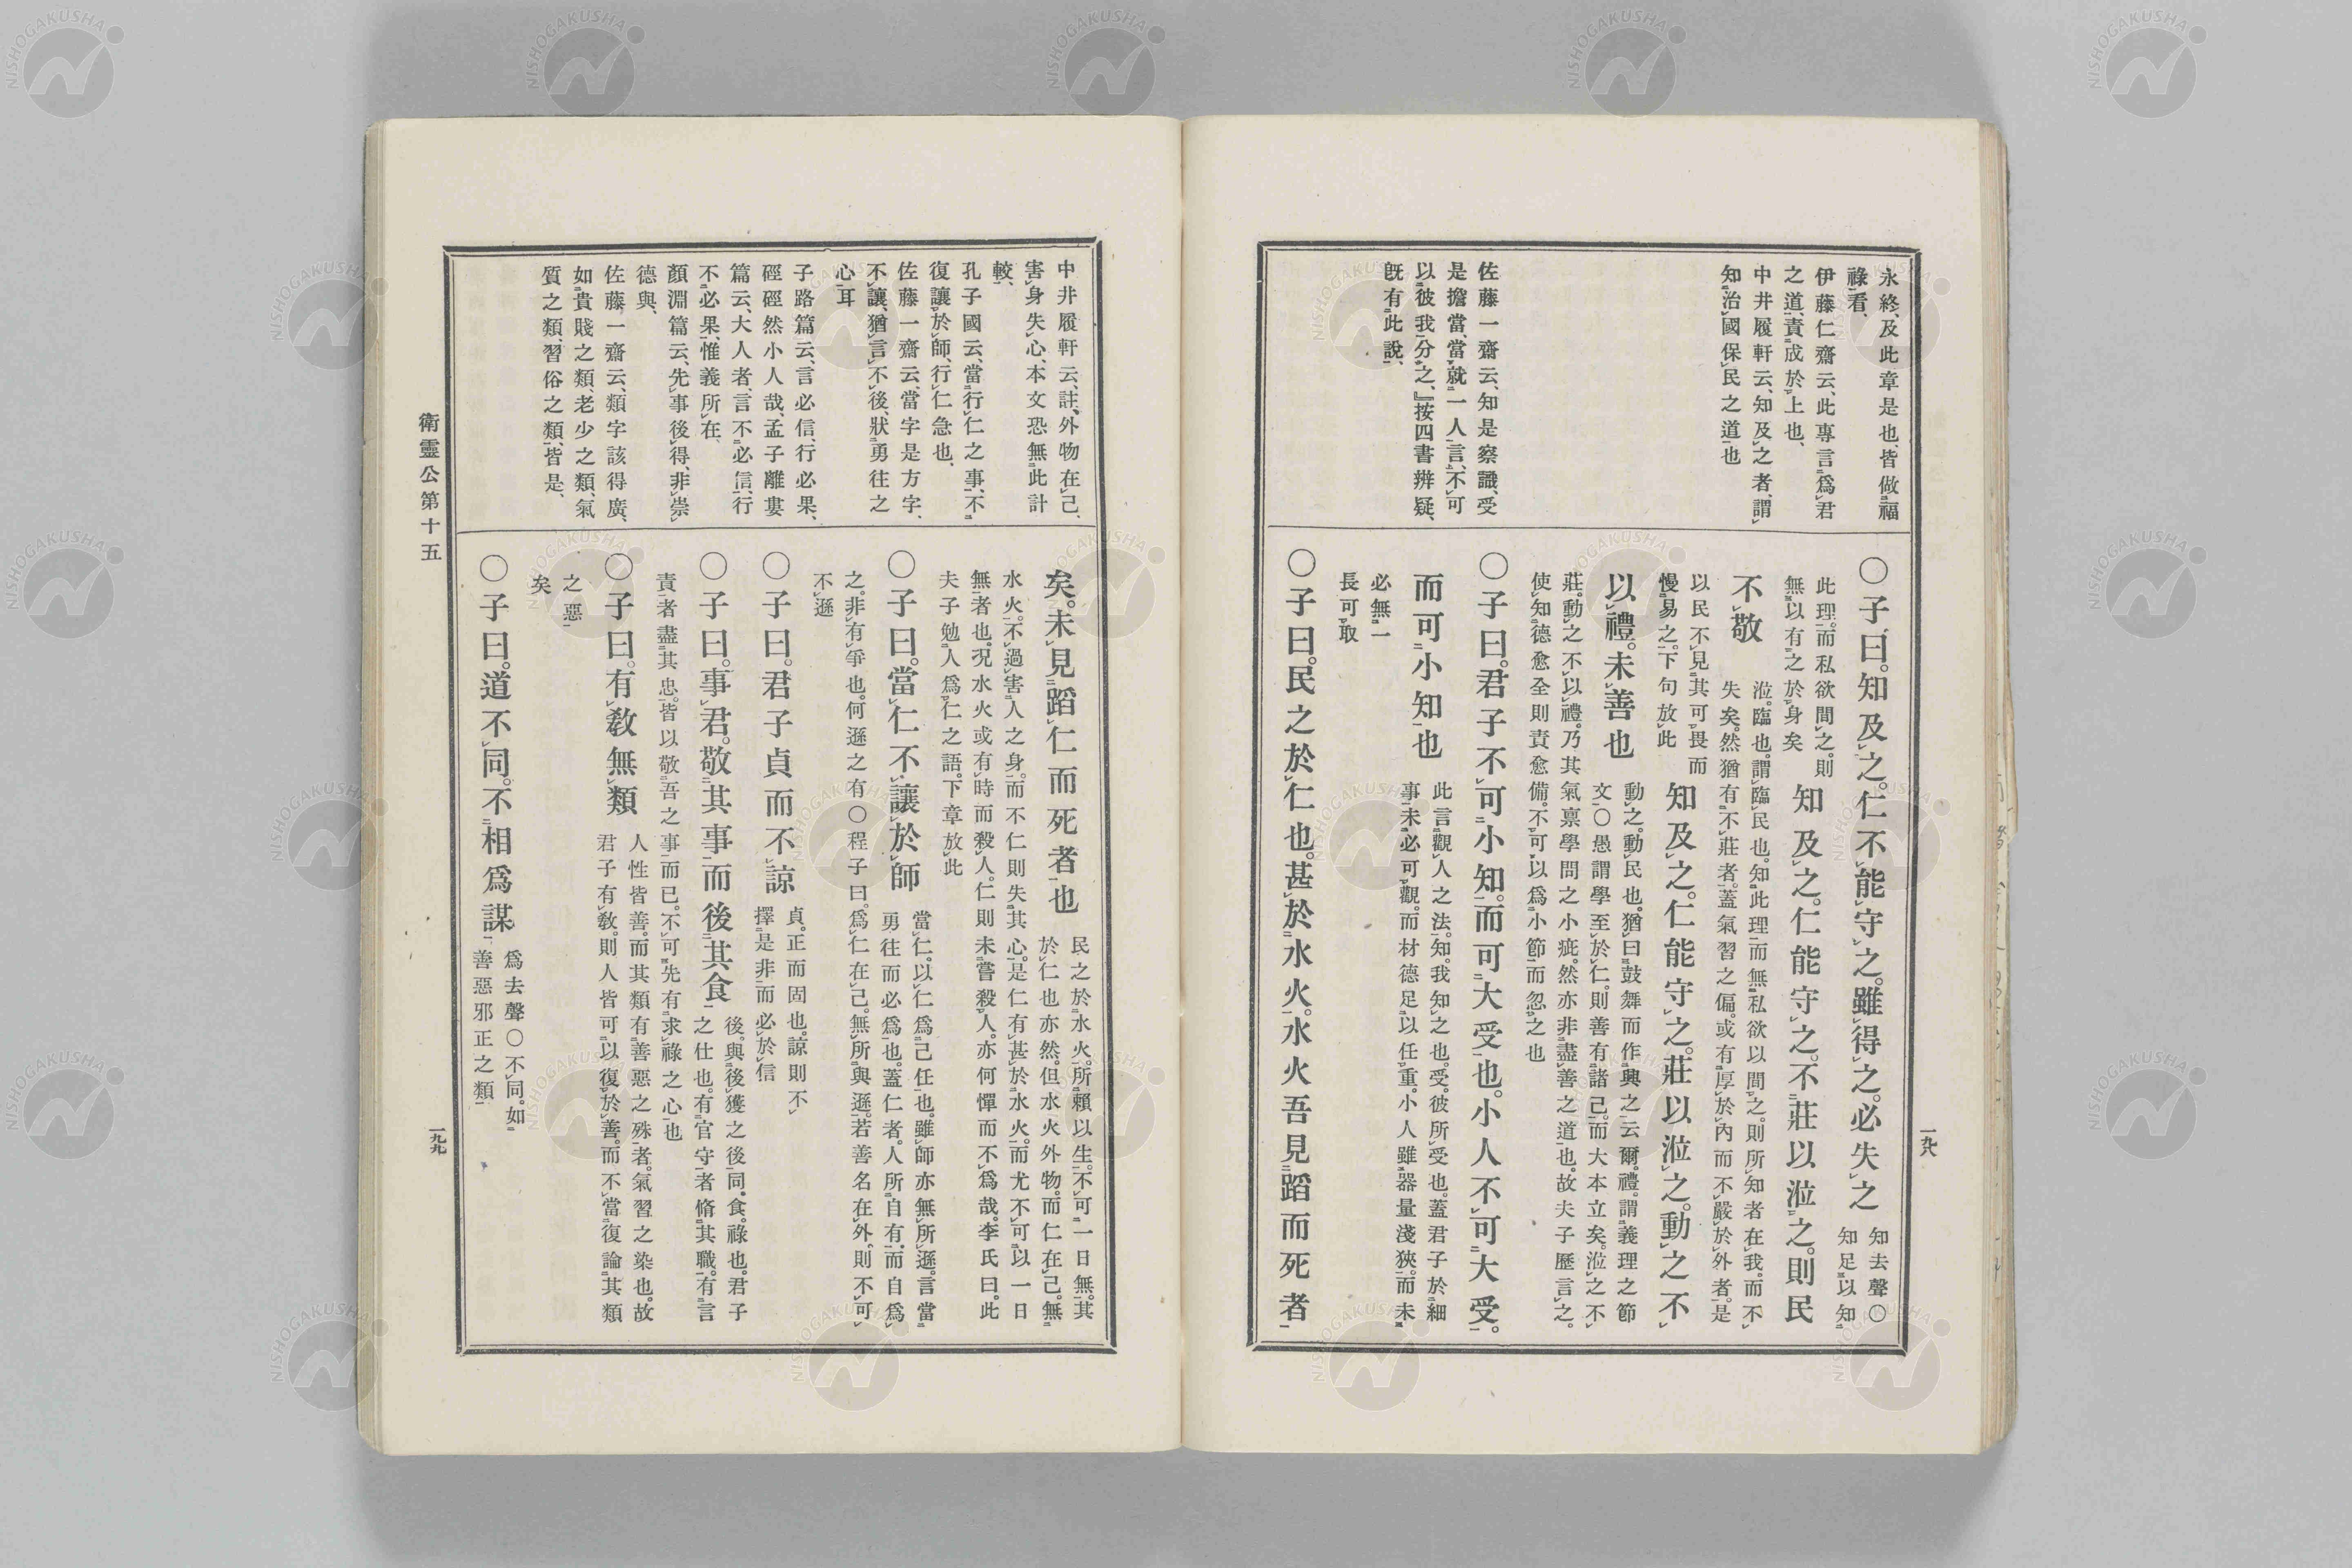 永終、及此章是也、皆做福
祿看、
伊藤仁齋云、此專言爲君
之道、責成於上也、
中井履軒云、知及之者、謂
知治國保民之道也
佐藤一齋云、知是察識、受
是擔當、當就一人言、不可
以彼我分之、』按四書辨疑、
既有此說、
〇子曰。知及之。仁不能守之。雖得之。必失之
知去聲〇
知足以知
此理。而私欲間之。則
無以有之於身矣
知及之。仁能守之。不莊以涖之。則民
不敬
涖。臨也。謂臨民也。知此理而無私欲以間之。則所知者在我。而不
失矣。然猶有不莊者。蓋氣習之偏。或有厚於內而不嚴於外者。是
以民不見其可畏而
慢易之。下句放此
知及之。仁能守之。莊以涖之。動之不
以禮。未善也
動之。動民也。猶曰鼓舞而作興之云爾。禮。謂義理之節
文〇愚謂學至於仁。則善有諸己。而大本立矣。涖之不
莊。動之不以禮。乃其氣禀學問之小疵。然亦非盡善之道也。故夫子歷言之。
使知德愈全則責愈備。不可以爲小節而忽之也
〇子曰。君子不可小知。而可大受也。小人不可大受。
而可小知也
此言觀人之法。知。我知之也。受。彼所受也。蓋君子於細
事未必可觀。而材德足以任重。小人雖器量淺狹。而未
必無一
長可取
〇子曰。民之於仁也。甚於水火。水火吾見蹈而死者
一九八
中井履軒云、註、外物在己、
害身失心、本文恐無此計
較、
孔子國云、當行仁之事、不
復讓於師、行仁急也、
佐藤一齋云、當字是方字、
不讓、猶言不後、狀勇往之
心耳
子路篇云、言必信、行必果、
硜硜然小人哉、孟子離婁
篇云、大人者、言不必信、行
不必果、惟義所在、
顏淵篇云、先事後得、非崇
德與、
佐藤一齋云、類字該得廣、
如貴賤之類、老少之類、氣
質之類、習俗之類、皆是、
矣。未見蹈仁而死者也
民之於水火。所賴以生。不可一日無。其
於仁也亦然。但水火外物。而仁在己。無
水火。不過害人之身。而不仁則失其心。是仁有甚於水火。而尤不可以一日
無者也。況水火或有時而殺人。仁則未嘗殺人。亦何憚而不爲哉。李氏曰。此
夫子勉人爲仁之語。下章放此
〇子曰。當仁不讓於師
當仁。以仁爲己任也。雖師亦無所遜。言當
勇往而必爲也。蓋仁者。人所自有而自爲
之。非有爭也。何遜之有〇程子曰。爲仁在己。無所與遜。若善名在外。則不可
不遜
〇子曰。君子貞而不諒
貞。正而固也。諒則不
擇是非而必於信
〇子曰。事君。敬其事而後其食
後。與後獲之後同。食。祿也。君子
之仕也。有官守者脩其職。有言
責者盡其忠。皆以敬吾之事而已。不可先有求祿之心也
〇子曰。有敎無類
人性皆善。而其類有善惡之殊者。氣習之染也。故
君子有敎。則人皆可以復於善。而不當復論其類
之惡
矣
〇子曰。道不同。不相爲謀
爲去聲〇不同。如
善惡邪正之類
衛靈公第十五
一九九